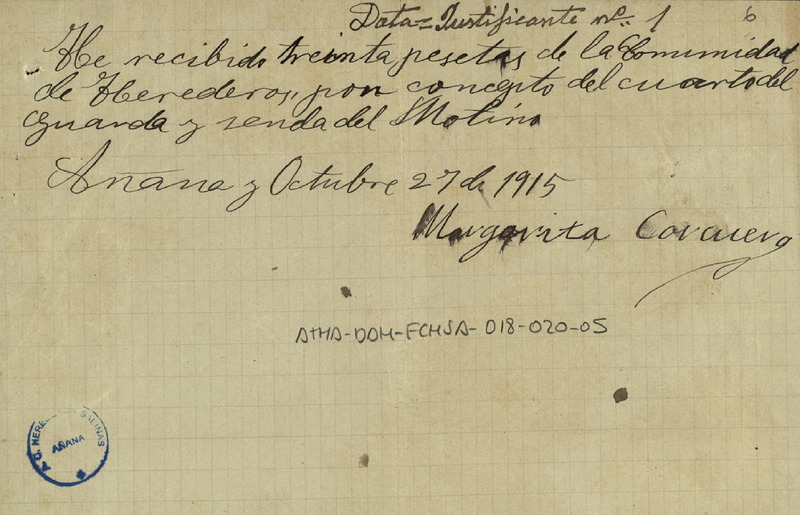 Data = Justificante nº 1
6
He recibido treinta pesetas de la Comunidad
de Herederos, por concepto del cuarto del
guarda y senda del Molino
Anana y Octubre 27 de 1915
Margarita
ATHA-DAH-FCHSA-018-020-05
SALINAS
AÑANA